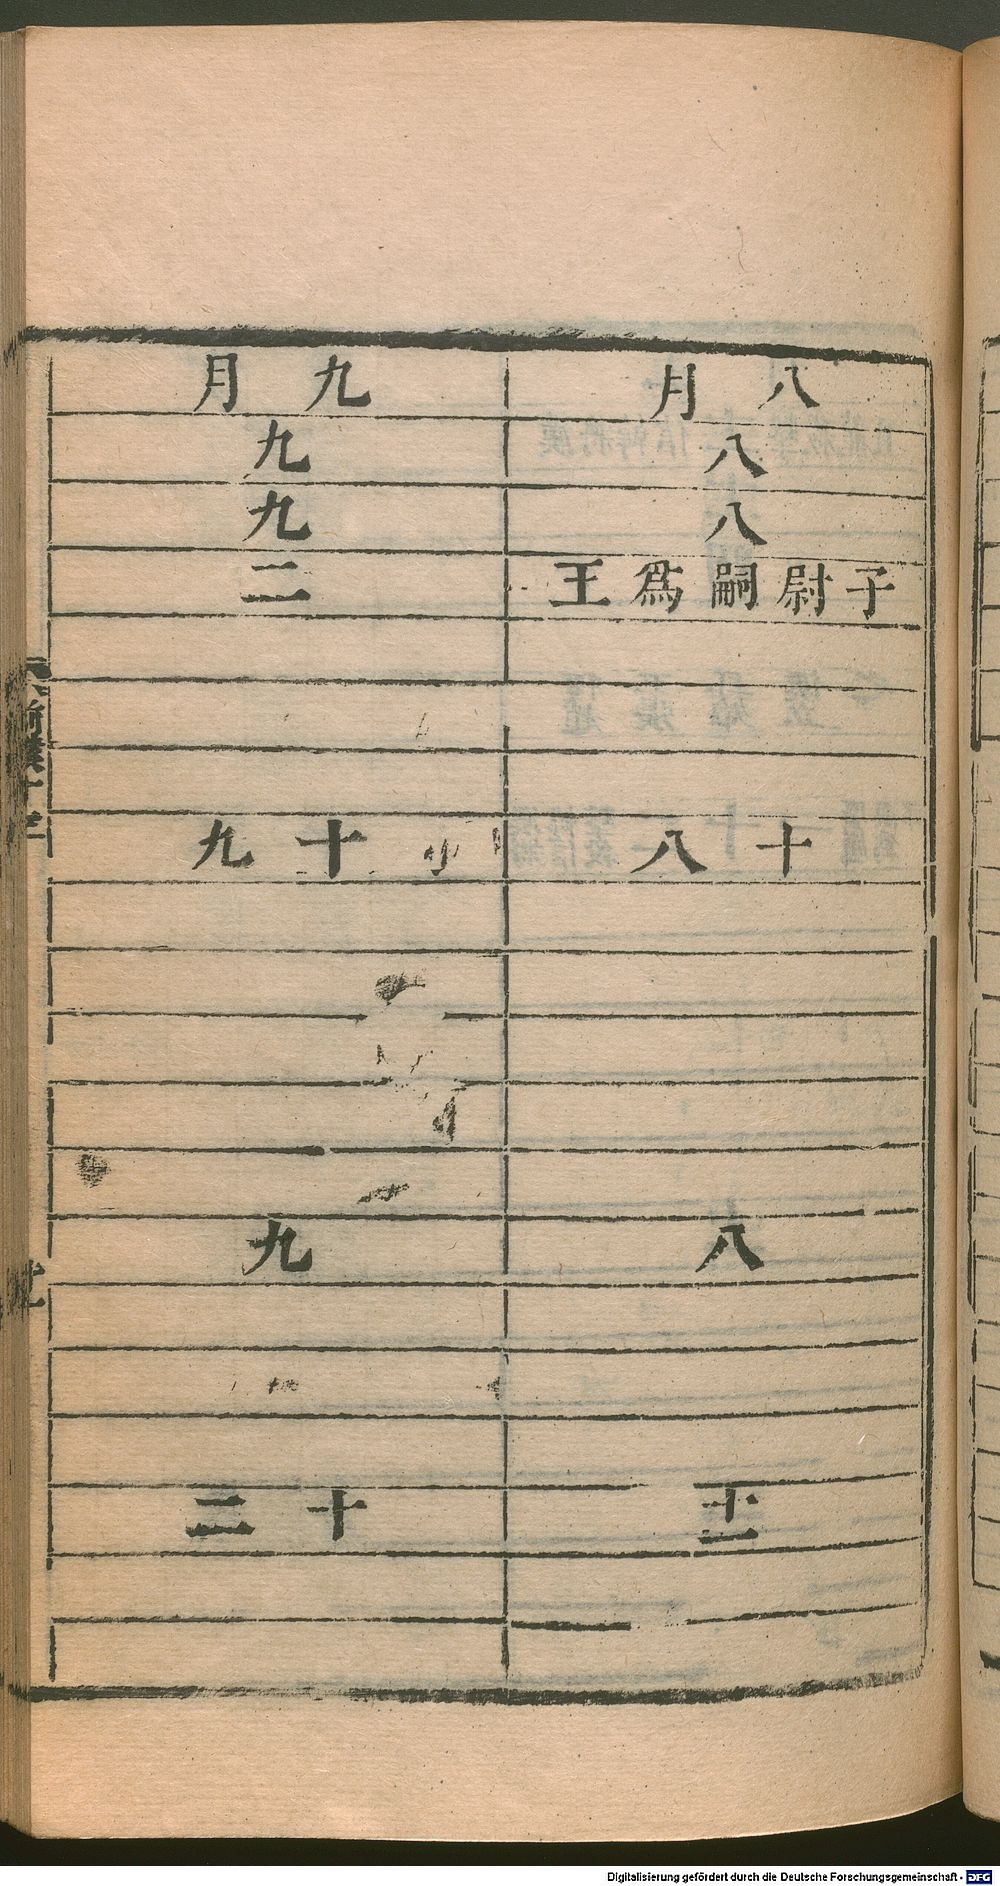 八月
八
八
子尉嗣爲王
十八
八
十二
九月
九
九
二
十九
九
十三
Digitalisierung gefördert durch die Deutsche Forschungsgemeinschaft - DFG